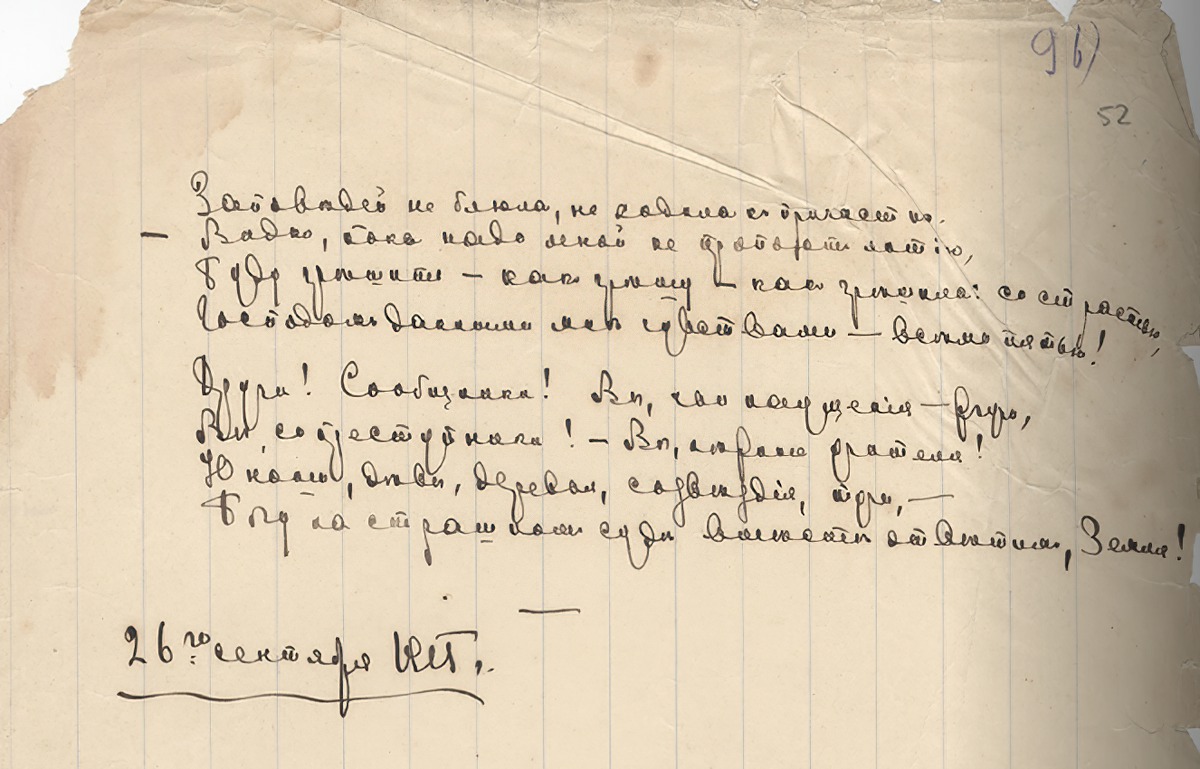 9 b)
52
Заповѣдей не блюла, не ходила къ причастью.
— Видно, пока надо мной не пропоютъ литію,
Буду грѣшить — какъ грѣшу — какъ грѣшила: со страстью,
Господомъ данными мнѣ чувствами — всѣми пятью!
Други! Сообщники! Вы, чьи наущенія — жгучи,
Вы, сопреступники! — Вы, нѣжные учителя!
Юноши, дѣвы, деревья, созвѣздія, тучи, —
Богу на страшномъ судѣ вмѣстѣ отвѣтимъ, Земля!
26го сентября